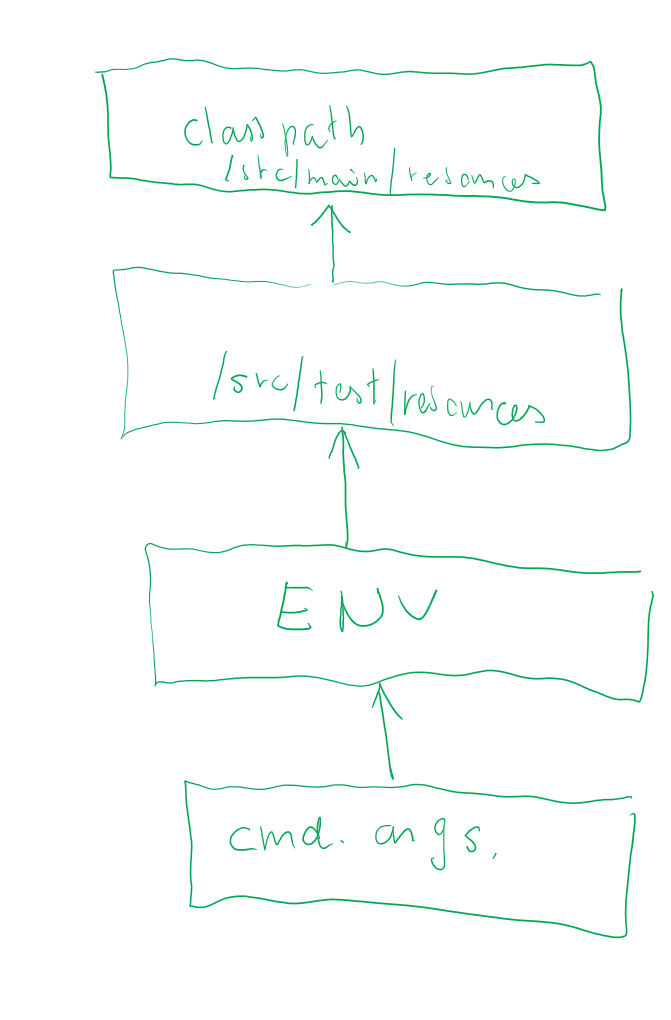 classpath
/src/main/resources
/src/test/resources
ENV
cmd. args.